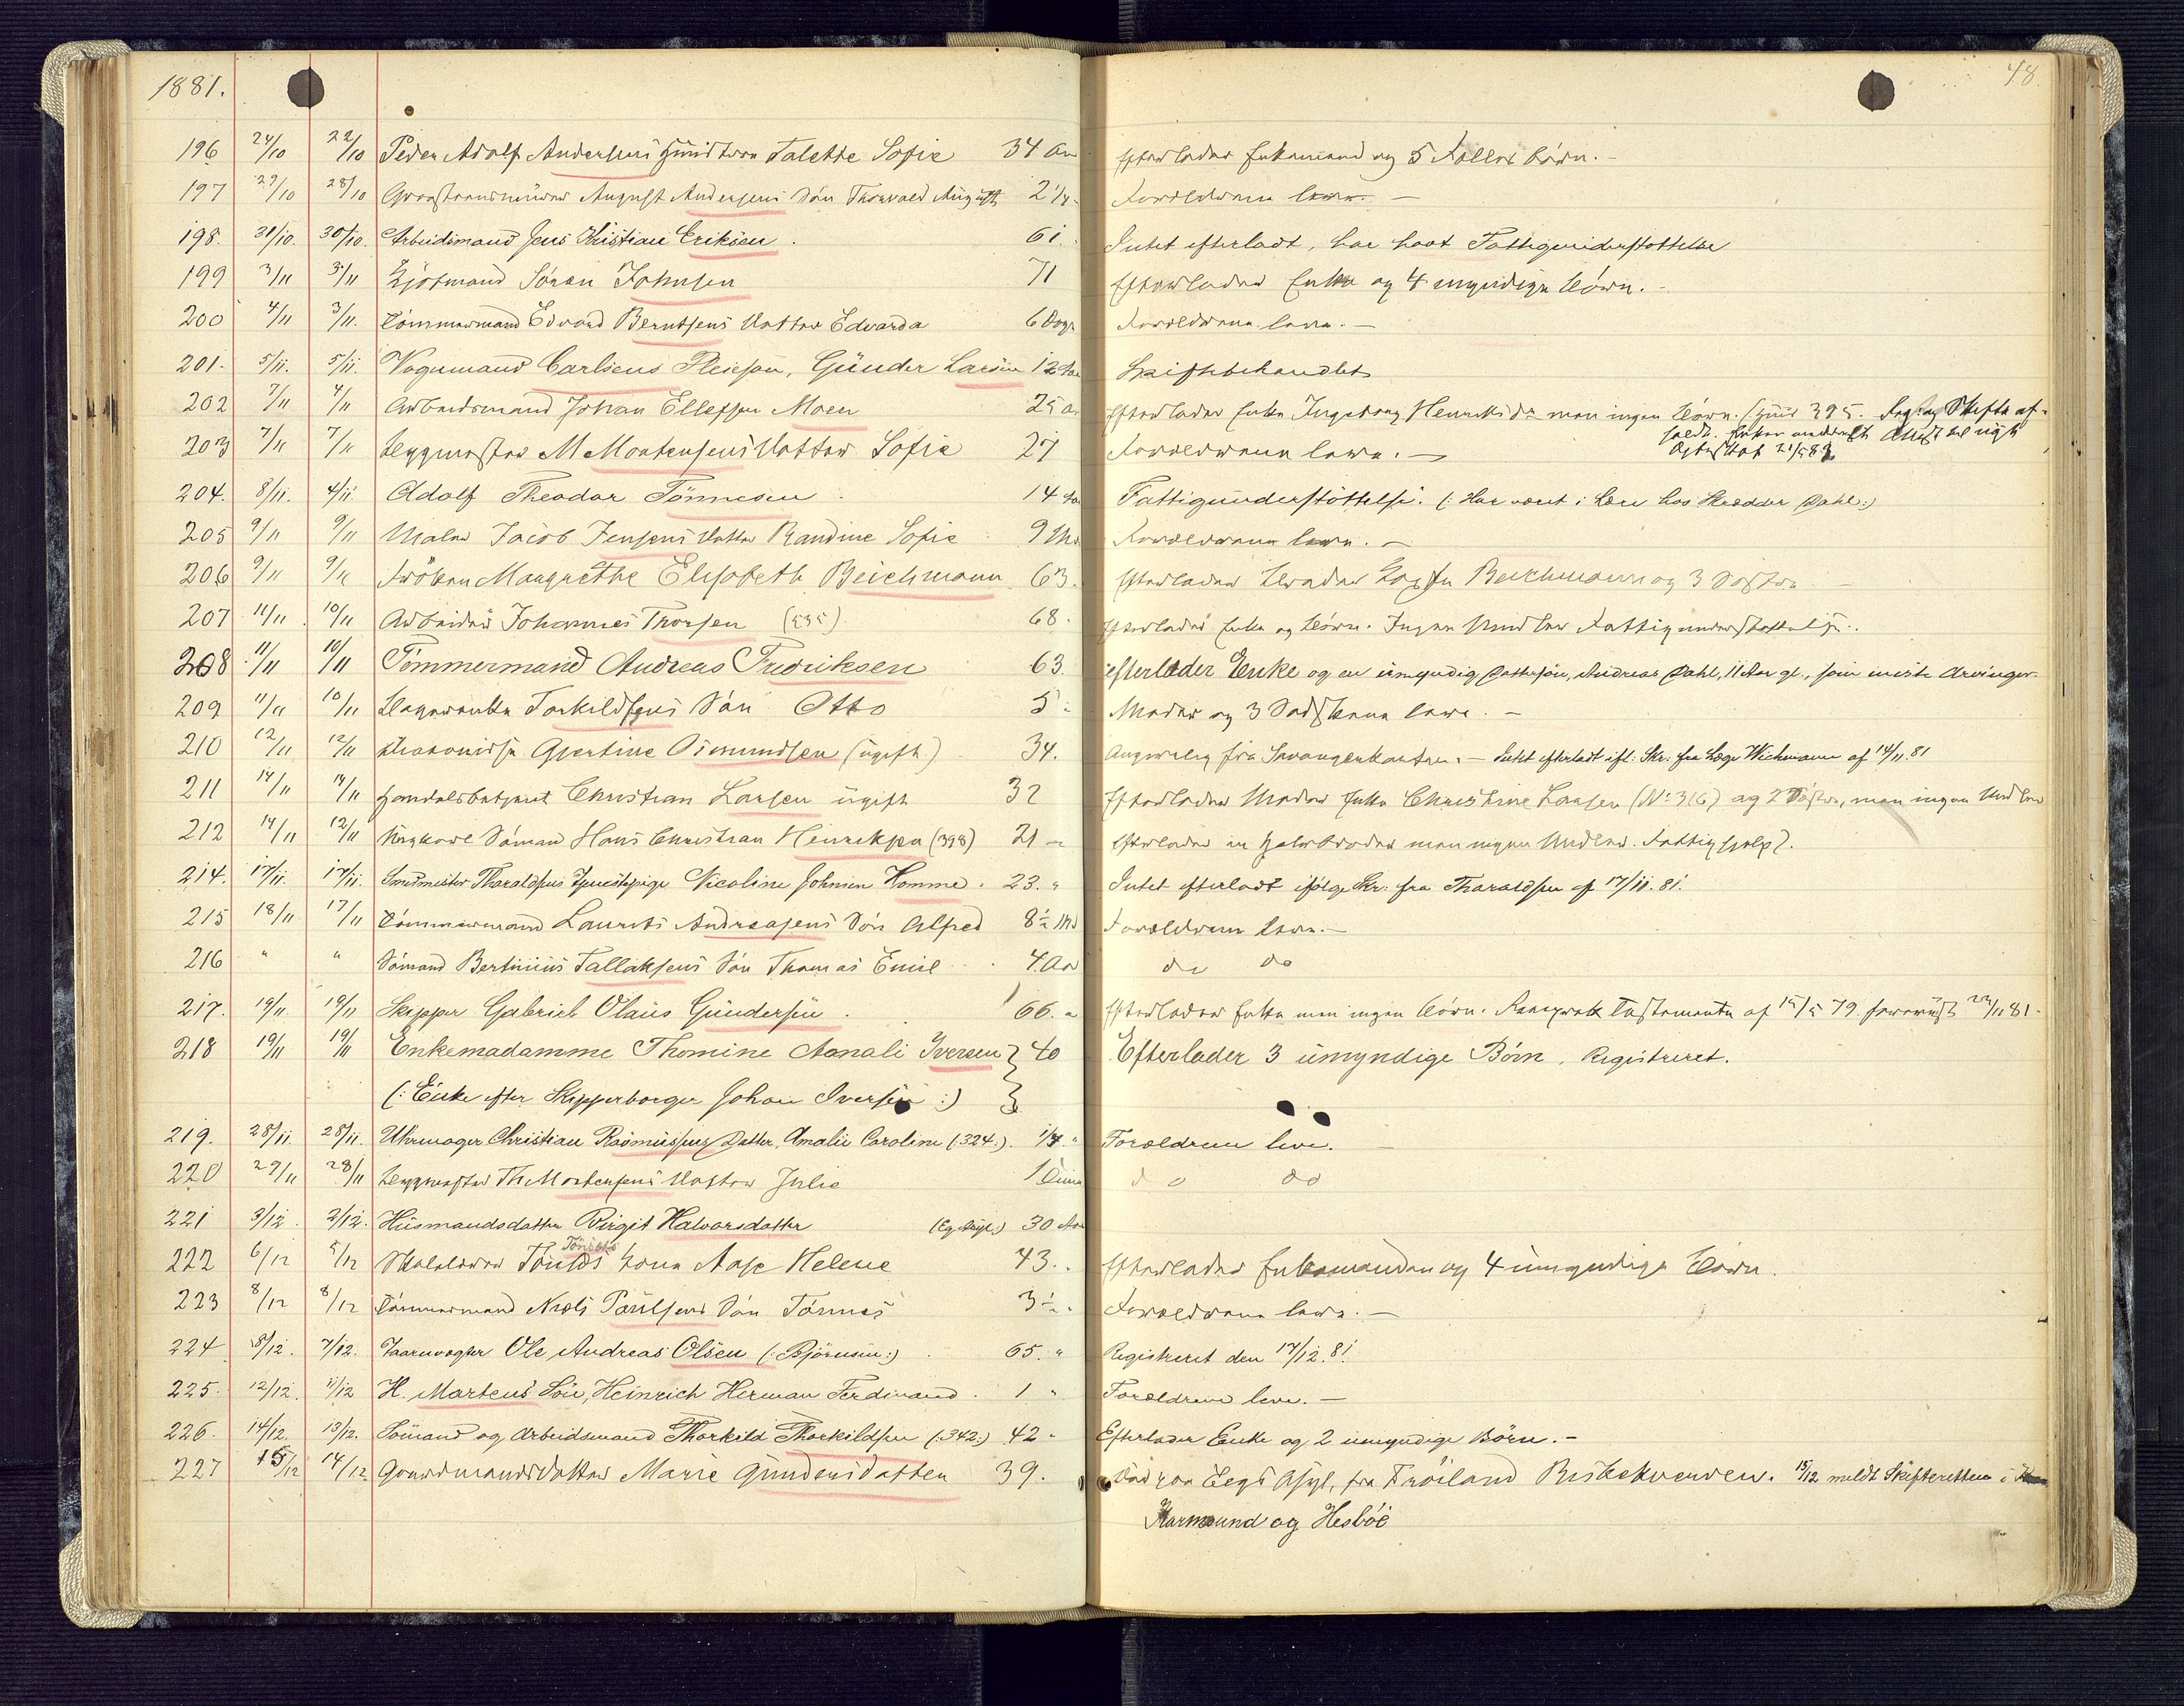 1881.
48
196 24/10 22/10 Peder Adolf Andersens Hustru Talette Sofie 34 Aar Efterlader Enkemand og 5 Fælles børn. -
197 29/10 28/10 August Andersens Søn Thorvald August 2 1/4 Forældrene leve. -
198. 31/10. 30/10. Arbeidsmand Jens Kristian Eriksen. 61. Intet efterladt, har havt Fattigunderstøttelse
199 3/11 3/11 Søren Johnsen 71 Efterlader Enke og 4 myndige Børn. -
200 4/11 3/11. Tømmermand Edvard Berntsens Datter Edvarda 6 Dage Forældrene leve. -
201. 5/11. 5/11. Vognmand Carlsens Pleiesøn, Gunder Larsen 12 Aar Skiftebehandlet
202 7/11 4/11 Arbeidsmand Johan Ellefsen Moen 25 A. Efterlader Enke Ingeborg Henriksdr men ingen Børn. 395. Skifte af-
holdt. Enken meddelt Attest til nyt
Ægteskab 21/5 82
203 7/11 7/11 Byggmester M Mortensens Datter Sofie 27 Forældrene leve. -
204. 8/11. 4/11. Adolf Theodor Tønnesen. 14 Aar Fattigunderstøttelse. (: Har været i Lære hos Skrædder Dahl:)
205 9/11 9/11 Maler Jacob Jensens Datter Randine Sofie 9 Md. Forældrene leve. -
206 9/11 9/11 Frøken Margrethe Elisabeth Beichmann 63. Efterlader Broder Beichmann og 3 Søstre
207 11/11 10/11 Arbeider Johannes Thorsen (535). 68. Efterlader Enke og Børn. Ingen Midler Fattigunderstøttelse.
208 11/11 10/11 Tømmermand Andreas Fredriksen 63. efterlader Enke og en umyndig Dattersøn, Andreas Dahl, 11 Aar gl., som eneste Arvinger.
209 11/11 10/11 Torkildsens Søn Otto 5 Moder og 3 Sødskende leve. -
210 12/11 12/11 Gjertine Osmundsen (ugift) 34. Angivelig fra Stavangerkanten. - Intet efterladt ifl. Skr. fra Læge Wichmann af 14/11. 81
211 14/11 14/11 Handelsbetjent Christian Larsen ugift 32 Efterlader Moder Enke Christine Larsen (No 316) og 2 Søstre, men ingen Midler
212 14/11 12/11 Sømand Hans Christian Henriksen (398) 21 Efterlader en Halvbroder men ingen Midler. Fattighjelp?.
214. 17/11. 17/11. Smedmester Tharaldsens Tjenestepige Nicoline Johnsen Homme. 23. " Intet efterladt ifølge Skr. fra Tharaldsen af 17/11. 81.
215 18/11 17/11 Tømmermand Laurits Andreasens Søn Alfred 8 1/2 Md Forældrene leve. -
216 " " Sømand Bertinius Tallaksens Søn Thomas Emil 4 Aar do do
217. 19/11 19/11 Skipper Gabriel Olaus Gundersen. 66. " Efterlader Enke men ingen Børn. Testamente af 15/5 79. 23/11 81.
218 19/11 19/11 Enkemadamme Thomine Aanali Iversen } 40 Efterlader 3 umyndige Børn. Registreret.
(: Enke efter Skipperborger Johan Iversen :) }
219. 28/11. 28/11. Uhrmager Christian Rasmussens Datter, Amalie Caroline (:324:). 1/4 " Forældrene leve.
220 29/11 28/11 Byggmester Th Mortensens Datter Julie 1 Time do do
221 3/12. 2/12. Husmandsdatter Birgit Halvorsdatter (Eg Asyl:) 30 Aar
222 6/12 5/12 Kone Aase Helene 43. " Efterlader Enkemanden og 4 umyndige Børn.
223 8/12 8/12 Tømmermand Niels Paulsens Søn Tønnes 3 1/2 " Forældrene leve. -
224 8/12. 7/12. Taarnvogter Ole Andreas Olsen (: Bjørnsen:). 65. " Registreret den 17/12. 81.
225. 12/12. 11/12 H. Martens Søn, Heinrich Herman Ferdinand. 1 " Forældrene leve. -
226. 14/12. 13/12. Sømand og Arbeidsmand Thorkild Thorkildsen (:342:) 42 " Efterlader Enke og 2 umyndige Børn. -
227 15/12 14/12 Gaardmandsdatter Marie Gundersdatter 39. Død paa Eegs Asyl, fra Frøiland 15/12 meldt Skifteretten i
Karmsund og Hesbøe